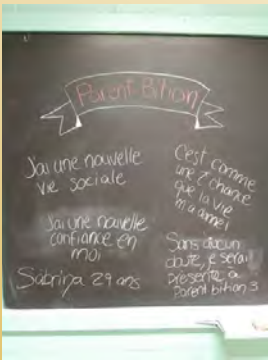 Parent-Bition
J'ai une nouvelle
vie sociale
J'ai une nouvelle
confiance en
moi
Sabrina 29 ans
C'est comme
une 2e chance
que la vie
m'a donné
Sans aucun
doute, je serai
présente à
Parent bition 3